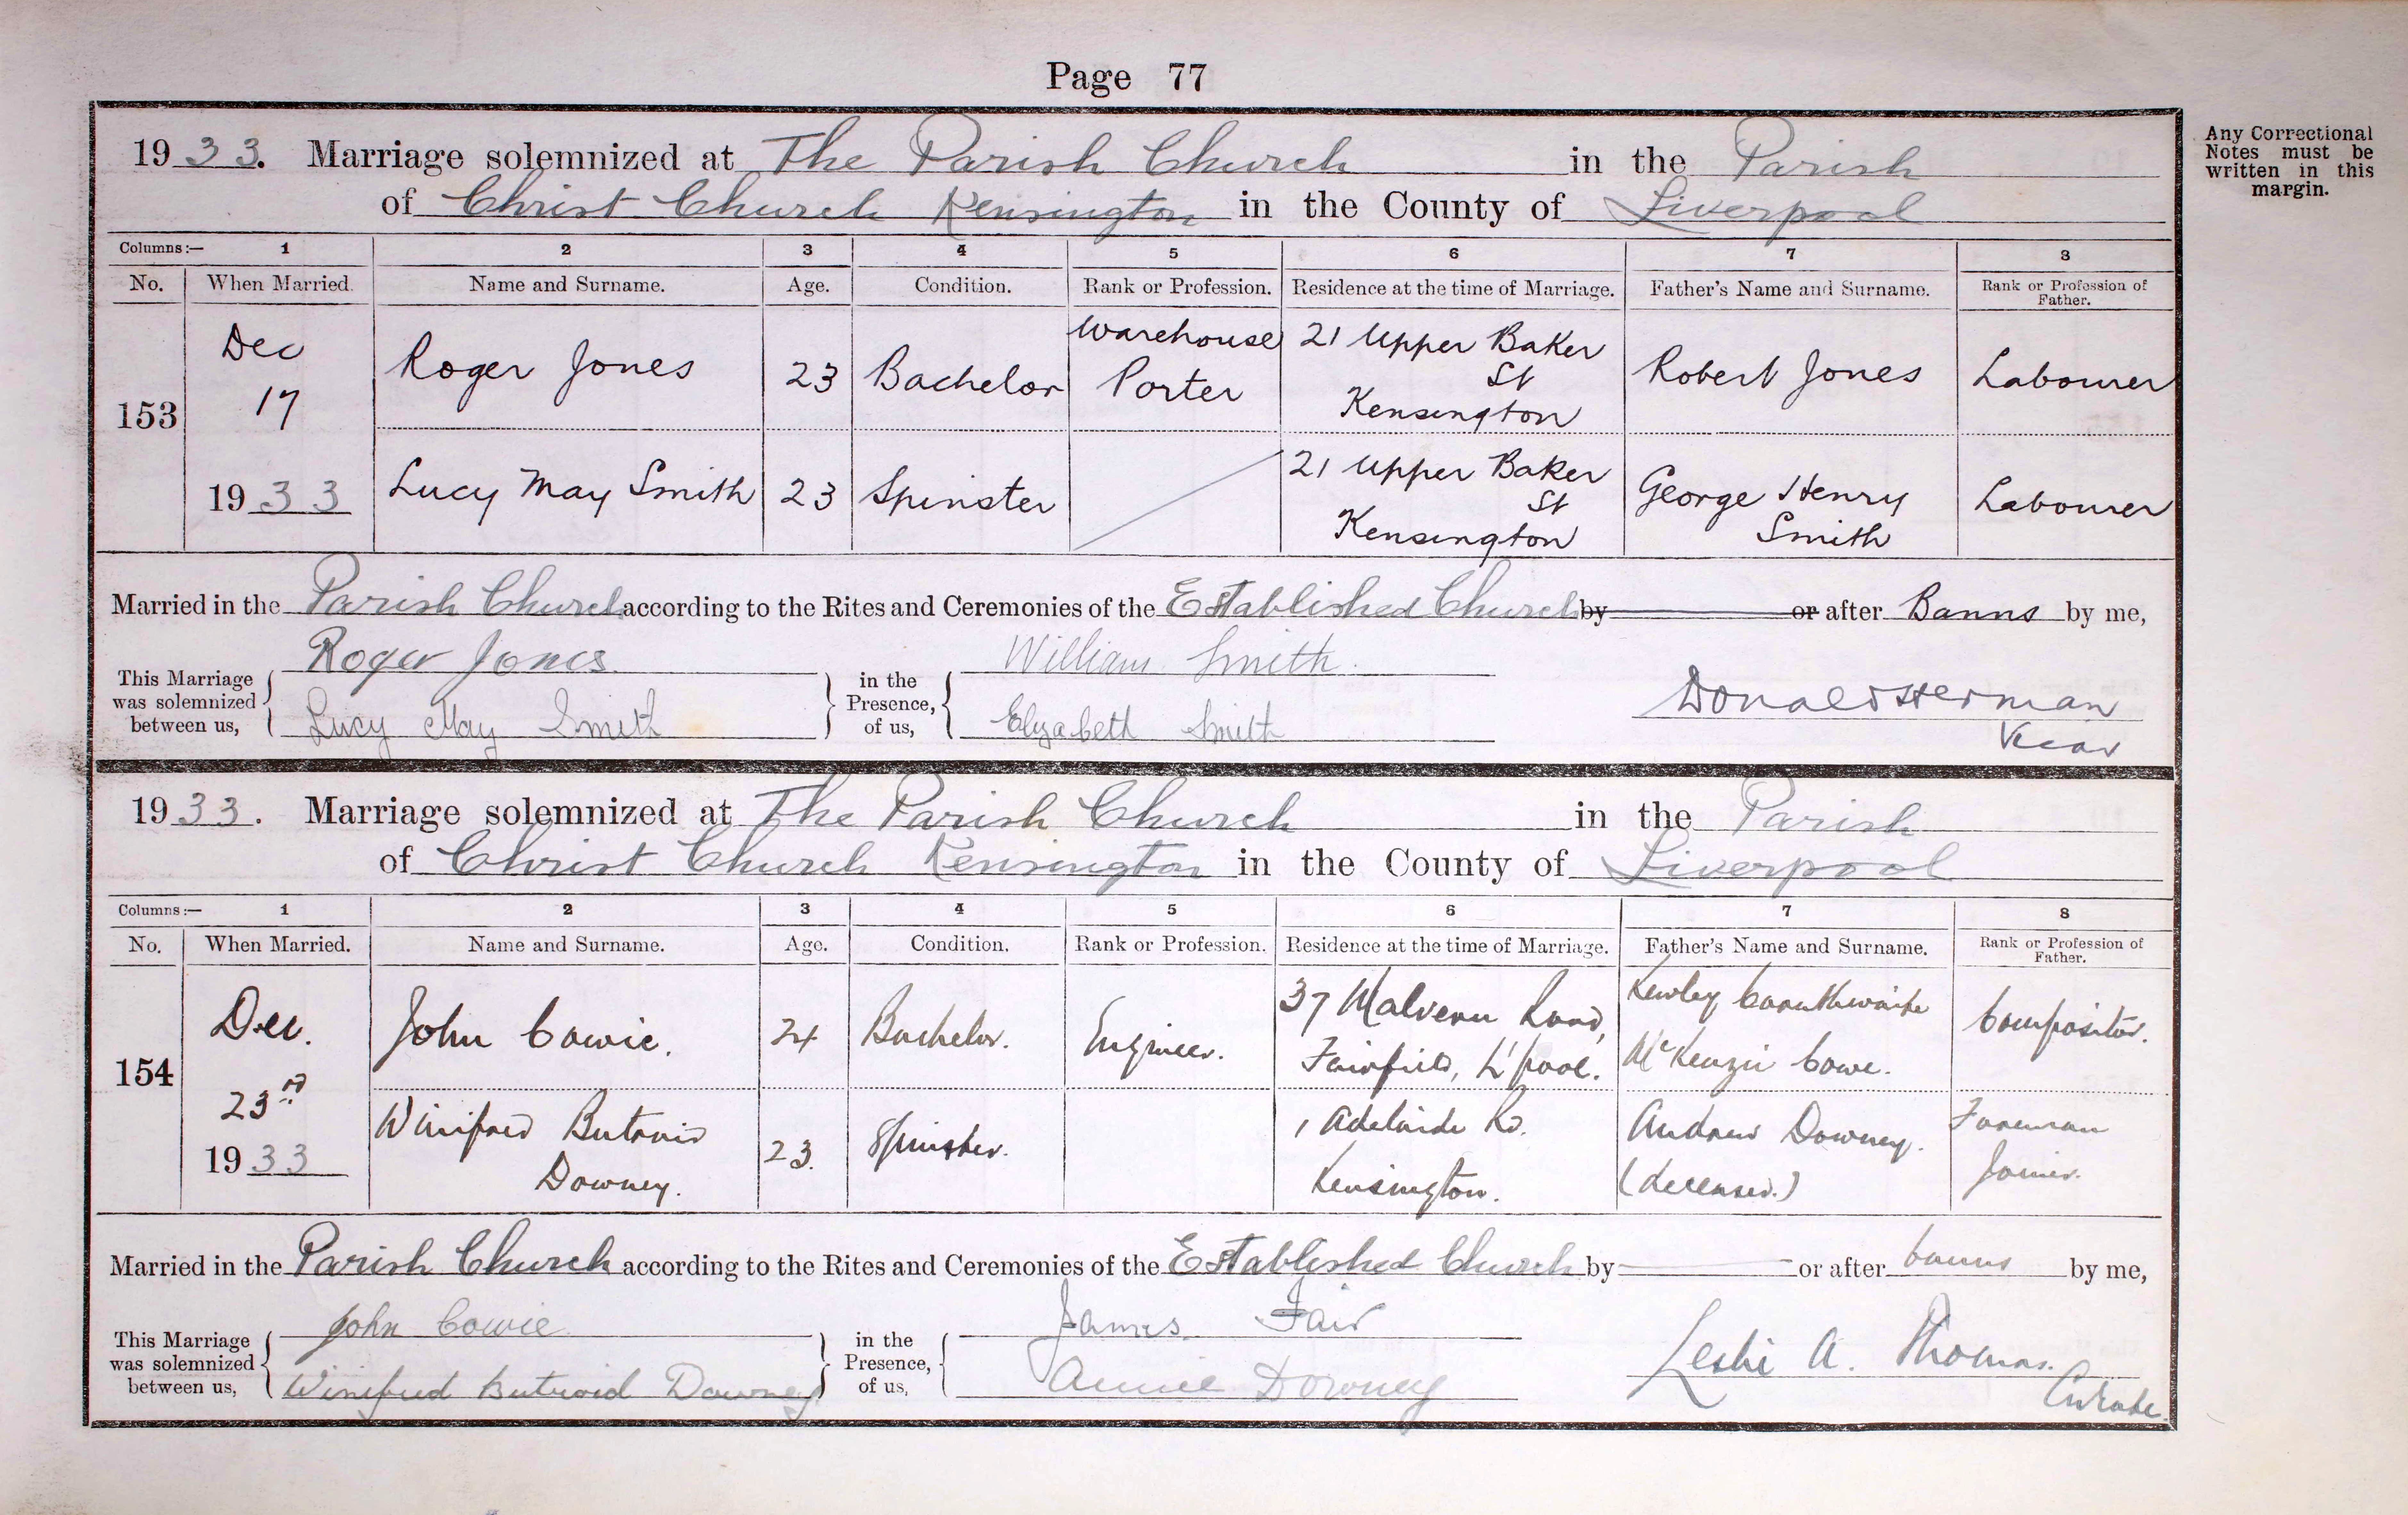 Page 77
Any Correctional
Notes must be
written in this
margin.
1933. Marriage solemnized at The Parish Church in the Parish
of Christ Church Kensington in the County of Liverpool
Columns:— 1 2 3 4 5 6 7 8
No. When Married. Name and Surname. Age. Condition. Rank or Profession. Residence at the time of Marriage. Father's Name and Surname. Rank or Profession of Father.
153 Dec 17 1933 Roger Jones 23 Bachelor Warehouse Porter 21 Upper Baker St Kensington Robert Jones Labourer
Lucy May Smith 23 Spinster 21 Upper Baker St Kensington George Henry Smith Labourer
Married in the Parish Church according to the Rites and Ceremonies of the Established Church by or after Banns by me,
This Marriage was solemnized between us, Roger Jones Lucy May Smith in the Presence, of us, William Smith Elizabeth Smith Donald Herman Vicar
1933. Marriage solemnized at The Parish Church in the Parish
of Christ Church Kensington in the County of Liverpool
Columns:— 1 2 3 4 5 6 7 8
No. When Married. Name and Surname. Age. Condition. Rank or Profession. Residence at the time of Marriage. Father's Name and Surname. Rank or Profession of Father.
154 Dec. 23rd 1933 John Cowie. 24 Bachelor. Engineer. 37 Malvern Road, Fairfield, L'pool. Kewley McKenzie Cowie. Compositor.
Winifred Downey. 23. Spinster. 1 Adelaide Rd. Kensington. Andrew Downey. (deceased.) Foreman Joiner.
Married in the Parish Church according to the Rites and Ceremonies of the Established Church by or after banns by me,
This Marriage was solemnized between us, John Cowie Winifred Butroid Downey in the Presence, of us, James Fair Annie Downey Leslie A. Thomas. Curate.